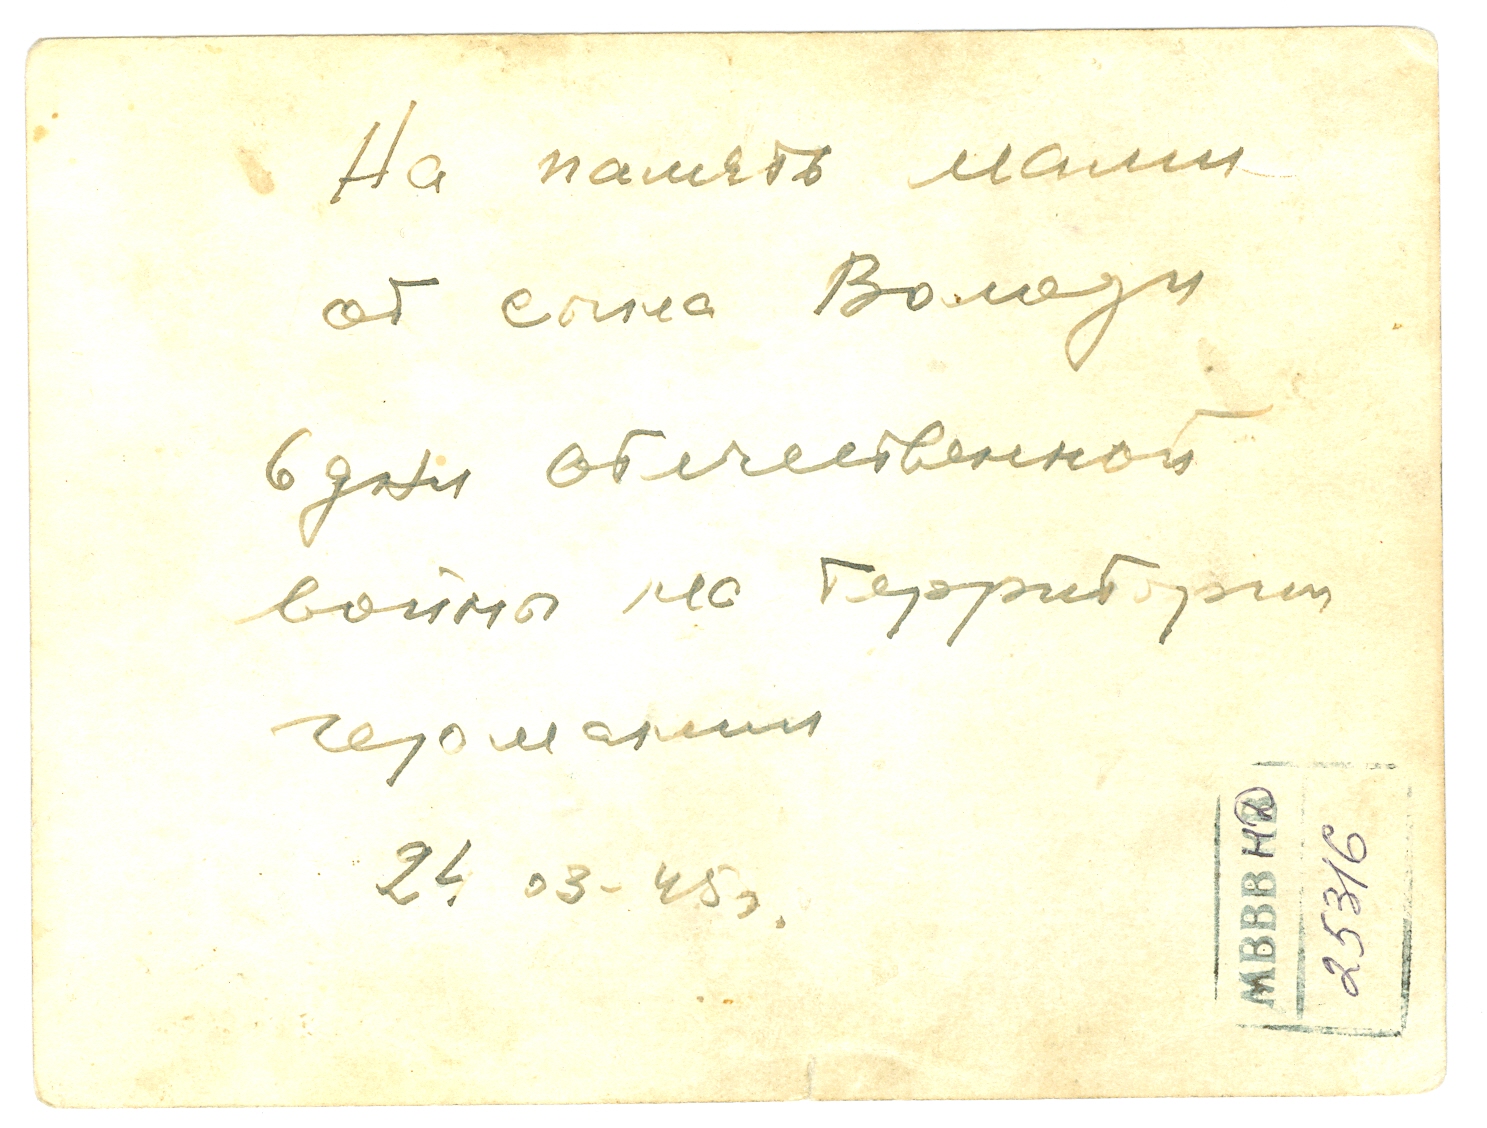 На память мами
от сына Володи
в дни отечественной
войны на территории
германии
24. 03-45г.
МВВВ НД
25316